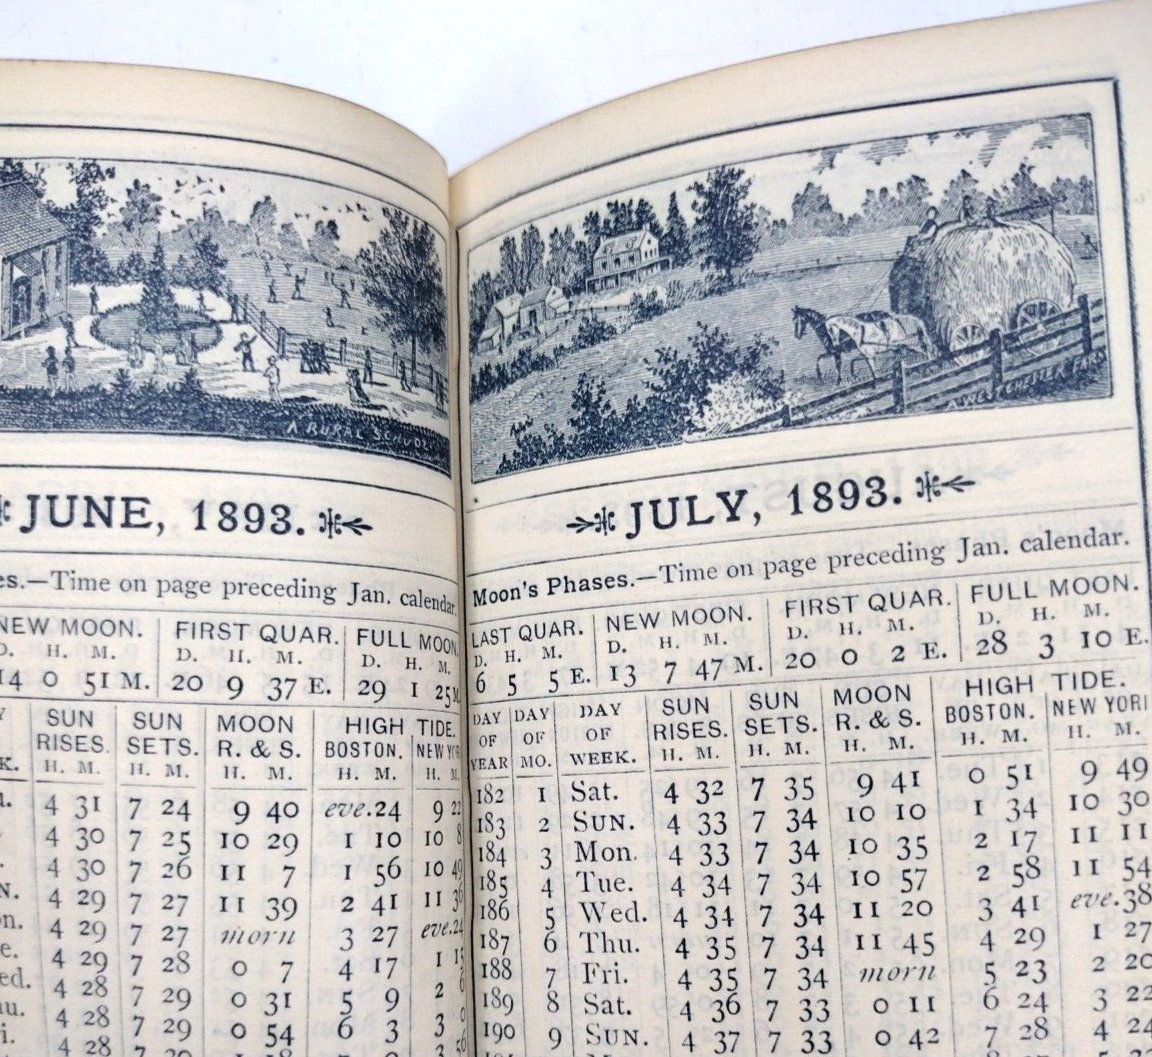 A RURAL SCHOOL
JUNE, 1893.
es.—Time on page preceding Jan. calendar.
NEW MOON. FIRST QUAR. FULL MOON
D. H. M. D. H. M. D. H. M.
14 0 51 M. 20 9 37 E. 29 1 25 M
SUN SUN MOON HIGH TIDE.
RISES. SETS. R. & S. BOSTON. NEW YORK
K. H. M. H. M. H. M. H. M. H. M.
4 31 7 24 9 40 eve.24 9 22
4 30 7 25 10 29 1 10 10 8
4 30 7 26 11 7 1 56 10 49
N. 4 29 7 27 11 39 2 41 11 36
on. 4 29 7 27 morn 3 27 eve.22
e. 4 29 7 28 0 7 4 17 1 15
ed. 4 28 7 29 0 31 5 9 2
u. 4 28 7 29 0 54 6 3 3
i. 4 28
A WESTCHESTER FARM
JULY, 1893.
Moon's Phases.—Time on page preceding Jan. calendar.
LAST QUAR. NEW MOON. FIRST QUAR. FULL MOON.
D. H. M. D. H. M. D. H. M. D. H. M.
6 5 5 E. 13 7 47 M. 20 0 2 E. 28 3 10 E.
DAY DAY DAY SUN SUN MOON HIGH TIDE.
OF OF OF RISES. SETS. R. & S. BOSTON. NEW YORK
YEAR MO. WEEK. H. M. H. M. H. M. H. M. H. M.
182 1 Sat. 4 32 7 35 9 41 0 51 9 49
183 2 SUN. 4 33 7 34 10 10 1 34 10 30
184 3 Mon. 4 33 7 34 10 35 2 17 11 11
185 4 Tue. 4 34 7 34 10 57 2 58 11 54
186 5 Wed. 4 34 7 34 11 20 3 41 eve.38
187 6 Thu. 4 35 7 34 11 45 4 29 1 27
188 7 Fri. 4 35 7 34 morn 5 23 2 20
189 8 Sat. 4 36 7 33 0 11 6 24 3 22
190 9 SUN. 4 37 7 33 0 42 7 28 4 24